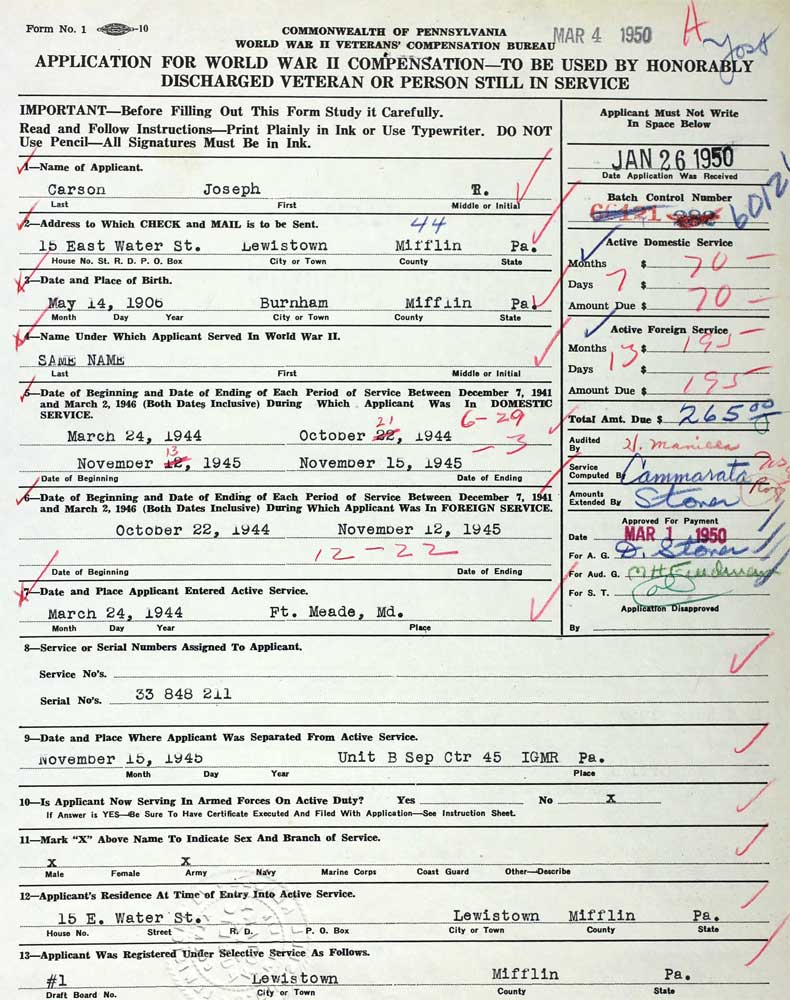 Form No. 1 -10
COMMONWEALTH OF PENNSYLVANIA
WORLD WAR II VETERANS' COMPENSATION BUREAU
MAR 4 1950
H
Yost
APPLICATION FOR WORLD WAR II COMPENSATION—TO BE USED BY HONORABLY
DISCHARGED VETERAN OR PERSON STILL IN SERVICE
IMPORTANT—Before Filling Out This Form Study it Carefully.
Read and Follow Instructions—Print Plainly in Ink or Use Typewriter. DO NOT
Use Pencil—All Signatures Must Be in Ink.
1—Name of Applicant.
Carson Joseph R.
Last First Middle or Initial
2—Address to Which CHECK and MAIL is to be Sent. 44
15 East Water St. Lewistown Mifflin Pa.
House No. St. R. D. P. O. Box City or Town County State
3—Date and Place of Birth.
May 14, 1906 Burnham Mifflin Pa.
Month Day Year City or Town County State
4—Name Under Which Applicant Served In World War II.
SAME NAME
Last First Middle or Initial
5—Date of Beginning and Date of Ending of Each Period of Service Between December 7, 1941
and March 2, 1946 (Both Dates Inclusive) During Which Applicant Was In DOMESTIC
SERVICE.
21 6-29
March 24, 1944 October 22, 1944
13 -3
November 12, 1945 November 15, 1945
Date of Beginning Date of Ending
6—Date of Beginning and Date of Ending of Each Period of Service Between December 7, 1941
and March 2, 1946 (Both Dates Inclusive) During Which Applicant Was In FOREIGN SERVICE.
October 22, 1944 November 12, 1945
12-22
Date of Beginning Date of Ending
7—Date and Place Applicant Entered Active Service.
March 24, 1944 Ft. Meade, Md.
Month Day Year Place
Applicant Must Not Write
In Space Below
JAN 26 1950
Date Application Was Received
Batch Control Number
60121
Active Domestic Service
Months $ 70 —
Days 7 $
Amount Due $ 70 —
Active Foreign Service
Months 13 $ 195 —
Days $
Amount Due $ 195
Total Amt. Due $ 265.00
Audited
By
Service
Computed By Cammarata
Amounts
Extended By Stoner
Approved For Payment
Date MAR 1 1950
For A. G. D. Stoner
For Aud. G.
For S. T.
Application Disapproved
By
8—Service or Serial Numbers Assigned To Applicant.
Service No's.
Serial No's. 33 848 211
9—Date and Place Where Applicant Was Separated From Active Service.
November 15, 1945 Unit B Sep Ctr 45 IGMR Pa.
Month Day Year Place
10—Is Applicant Now Serving In Armed Forces On Active Duty? Yes No X
If Answer is YES—Be Sure To Have Certificate Executed And Filed With Application—See Instruction Sheet.
11—Mark "X" Above Name To Indicate Sex And Branch of Service.
X X
Male Female Army Navy Marine Corps Coast Guard Other—Describe
12—Applicant's Residence At Time of Entry Into Active Service.
15 E. Water St. Lewistown Mifflin Pa.
House No. Street R. D. P. O. Box City or Town County State
13—Applicant Was Registered Under Selective Service As Follows.
#1 Lewistown Mifflin Pa.
Draft Board No. City or Town County State